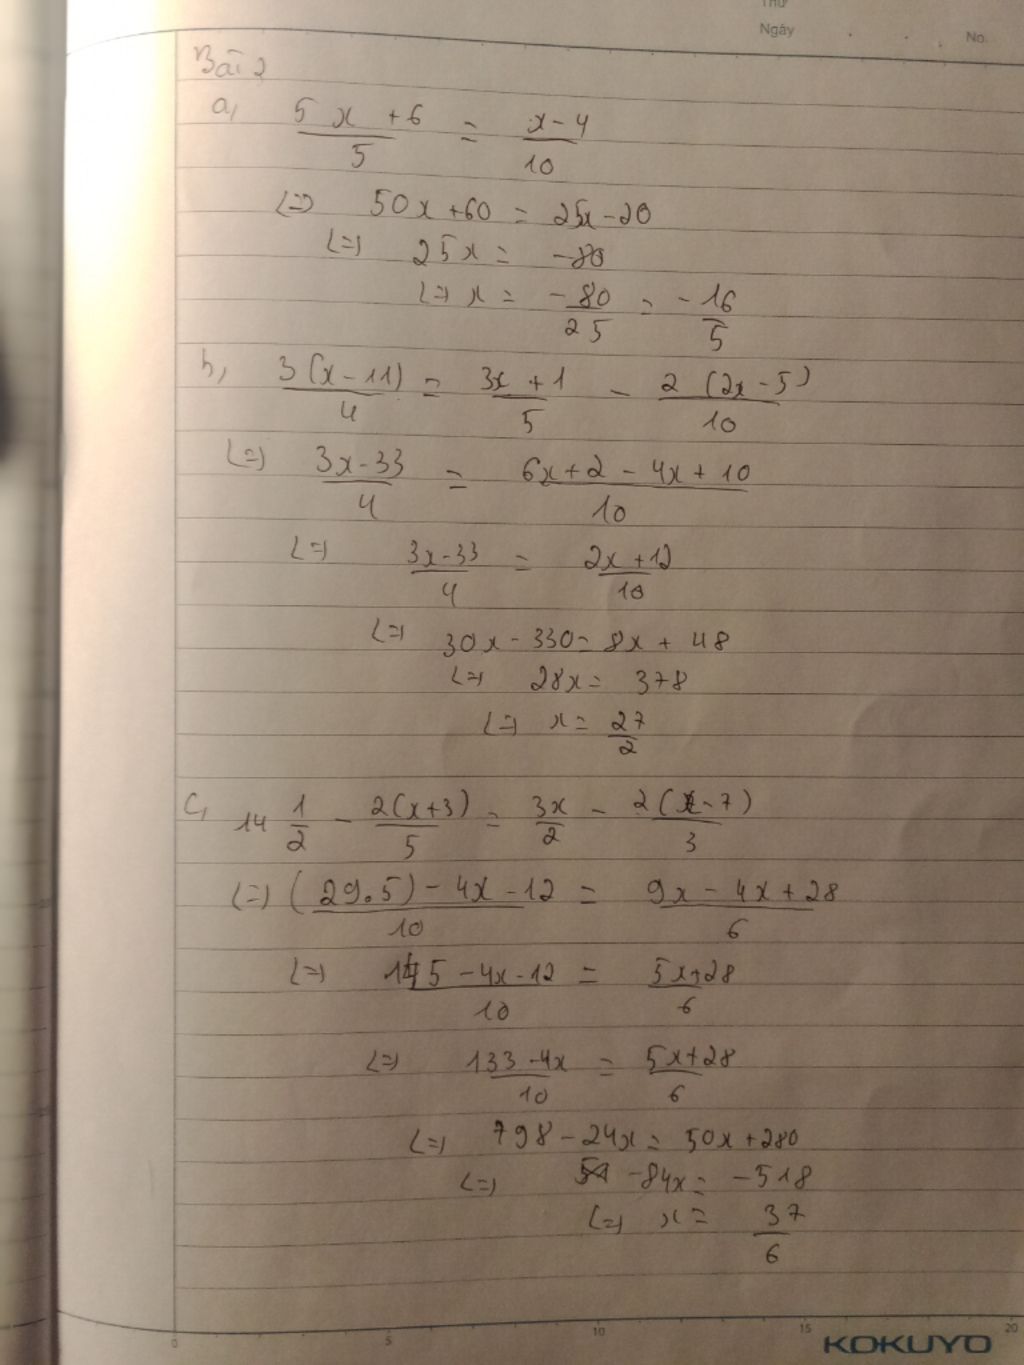 Thứ
Ngày
No.
Bài 2
a, (5x+6)/5 = (x-4)/10
<=> 50x+60 = 25x-20
<=> 25x = -80
<=> x = -80/25 = -16/5
b, 3(x-11)/4 = (3x+1)/5 - 2(2x-5)/10
<=> (3x-33)/4 = (6x+2-4x+10)/10
<=> (3x-33)/4 = (2x+12)/10
<=> 30x-330 = 8x+48
<=> 28x = 378
<=> x = 27/2
c, 14 1/2 - 2(x+3)/5 = 3x/2 - 2(x-7)/3
<=> ((29.5)-4x-12)/10 = (9x-4x+28)/6
<=> (145-4x-12)/10 = (5x+28)/6
<=> (133-4x)/10 = (5x+28)/6
<=> 798-24x = 50x+280
<=> -84x = -518
<=> x = 37/6
0 5 10 15 20
KOKUYO